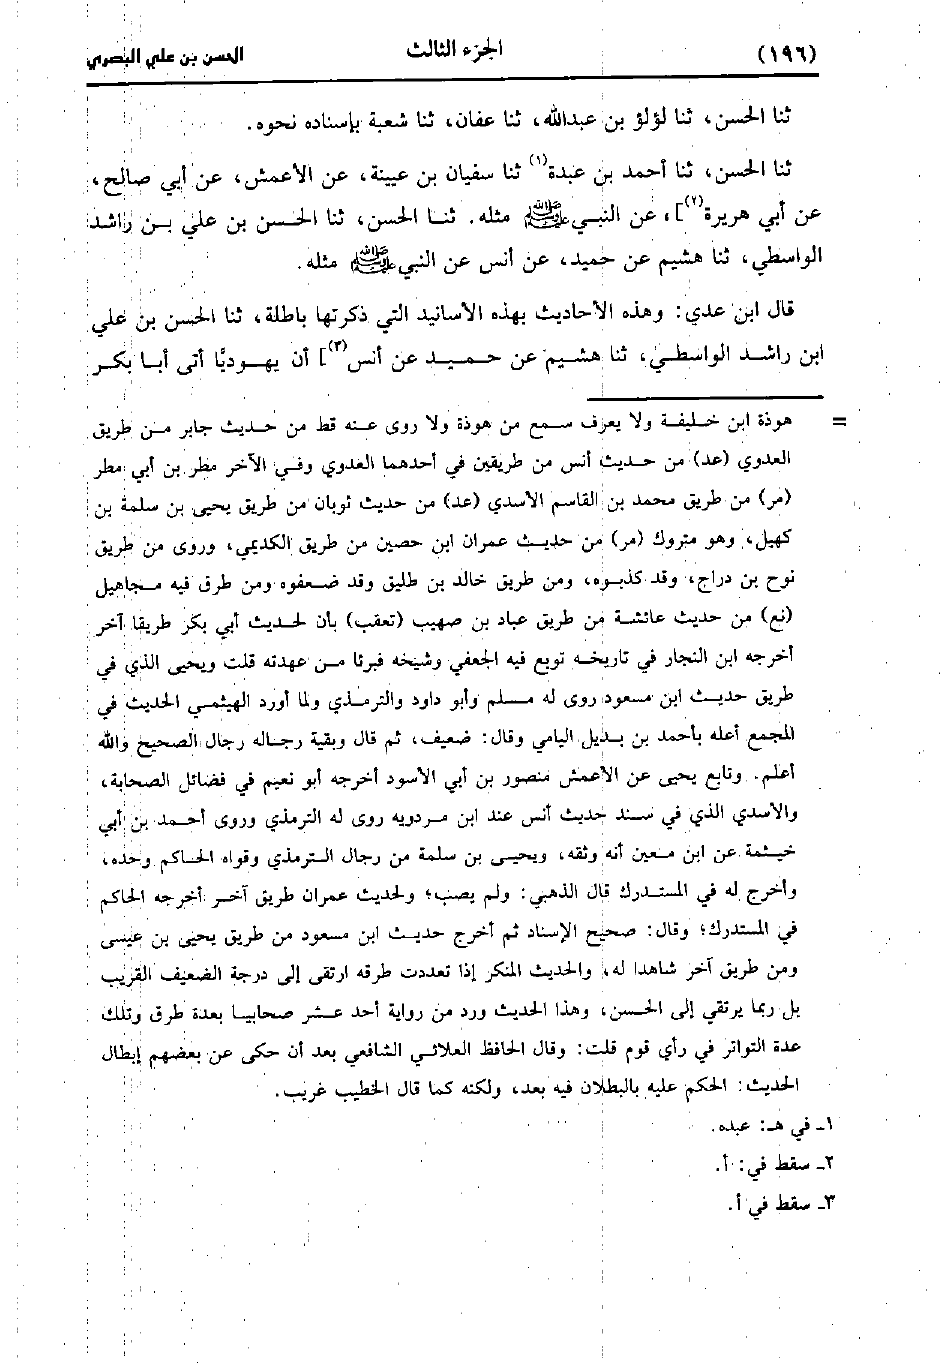 (١٩٦) الجزء الثالث الحسن بن علي البصري
ثنا الحسن، ثنا لؤلؤ بن عبدالله، ثنا عفان، ثنا شعبة بإسناده نحوه.
ثنا الحسن، ثنا أحمد بن عبدة(١) ثنا سفيان بن عيينة، عن الأعمش، عن أبي صالح،
عن أبي هريرة(٢)]، عن النبي ﷺ مثله. ثنا الحسن، ثنا الحسن بن علي بن راشد
الواسطي، ثنا هشيم عن حميد، عن أنس عن النبي ﷺ مثله.
قال ابن عدي: وهذه الأحاديث بهذه الأسانيد التي ذكرتها باطلة، ثنا الحسن بن علي
ابن راشد الواسطي، ثنا هشيم عن حميد عن أنس(٣)] أن يهوديًّا أتى أبا بكر
= هوذة ابن خليفة ولا يعرف سمع من هوذة ولا روى عنه قط من حديث جابر من طريق
العدوي (عد) من حديث أنس من طريقين في أحدهما العدوي وفي الآخر مطر بن أبي مطر
(مر) من طريق محمد بن القاسم الأسدي (عد) من حديث ثوبان من طريق يحيى بن سلمة بن
كهيل، وهو متروك (مر) من حديث عمران ابن حصين من طريق الكديمي، وروى من طريق
نوح بن دراج، وقد كذبوه، ومن طريق خالد بن طليق وقد ضعفوه ومن طرق فيه مجاهيل
(نع) من حديث عائشة من طريق عباد بن صهيب (تعقب) بأن لحديث أبي بكر طريقا آخر
أخرجه ابن النجار في تاريخه توبع فيه الجعفي وشيخه فبرئا من عهدته قلت ويحيى الذي في
طريق حديث ابن مسعود روى له مسلم وأبو داود والترمذي ولما أورد الهيثمي الحديث في
المجمع أعله بأحمد بن بديل اليامي وقال: ضعيف، ثم قال وبقية رجاله رجال الصحيح والله
أعلم. وتابع يحيى عن الأعمش منصور بن أبي الأسود أخرجه أبو نعيم في فضائل الصحابة،
والأسدي الذي في سند حديث أنس عند ابن مردويه روى له الترمذي وروى أحمد بن أبي
خيثمة عن ابن معين أنه وثقه، ويحيى بن سلمة من رجال الترمذي وقواه الحاكم وحده،
وأخرج له في المستدرك قال الذهبي: ولم يصب؛ ولحديث عمران طريق آخر أخرجه الحاكم
في المستدرك؛ وقال: صحيح الإسناد ثم أخرج حديث ابن مسعود من طريق يحيى بن عيسى
ومن طريق آخر شاهدا له، والحديث المنكر إذا تعددت طرقه ارتقى إلى درجة الضعيف القريب
بل ربما يرتقي إلى الحسن، وهذا الحديث ورد من رواية أحد عشر صحابيا بعدة طرق وتلك
عدة التواتر في رأي قوم قلت: وقال الحافظ العلائي الشافعي بعد أن حكى عن بعضهم إبطال
الحديث: الحكم عليه بالبطلان فيه بعد، ولكنه كما قال الخطيب غريب.
١ـ في هـ: عبده.
٢ـ سقط في: أ.
٣ـ سقط في أ.